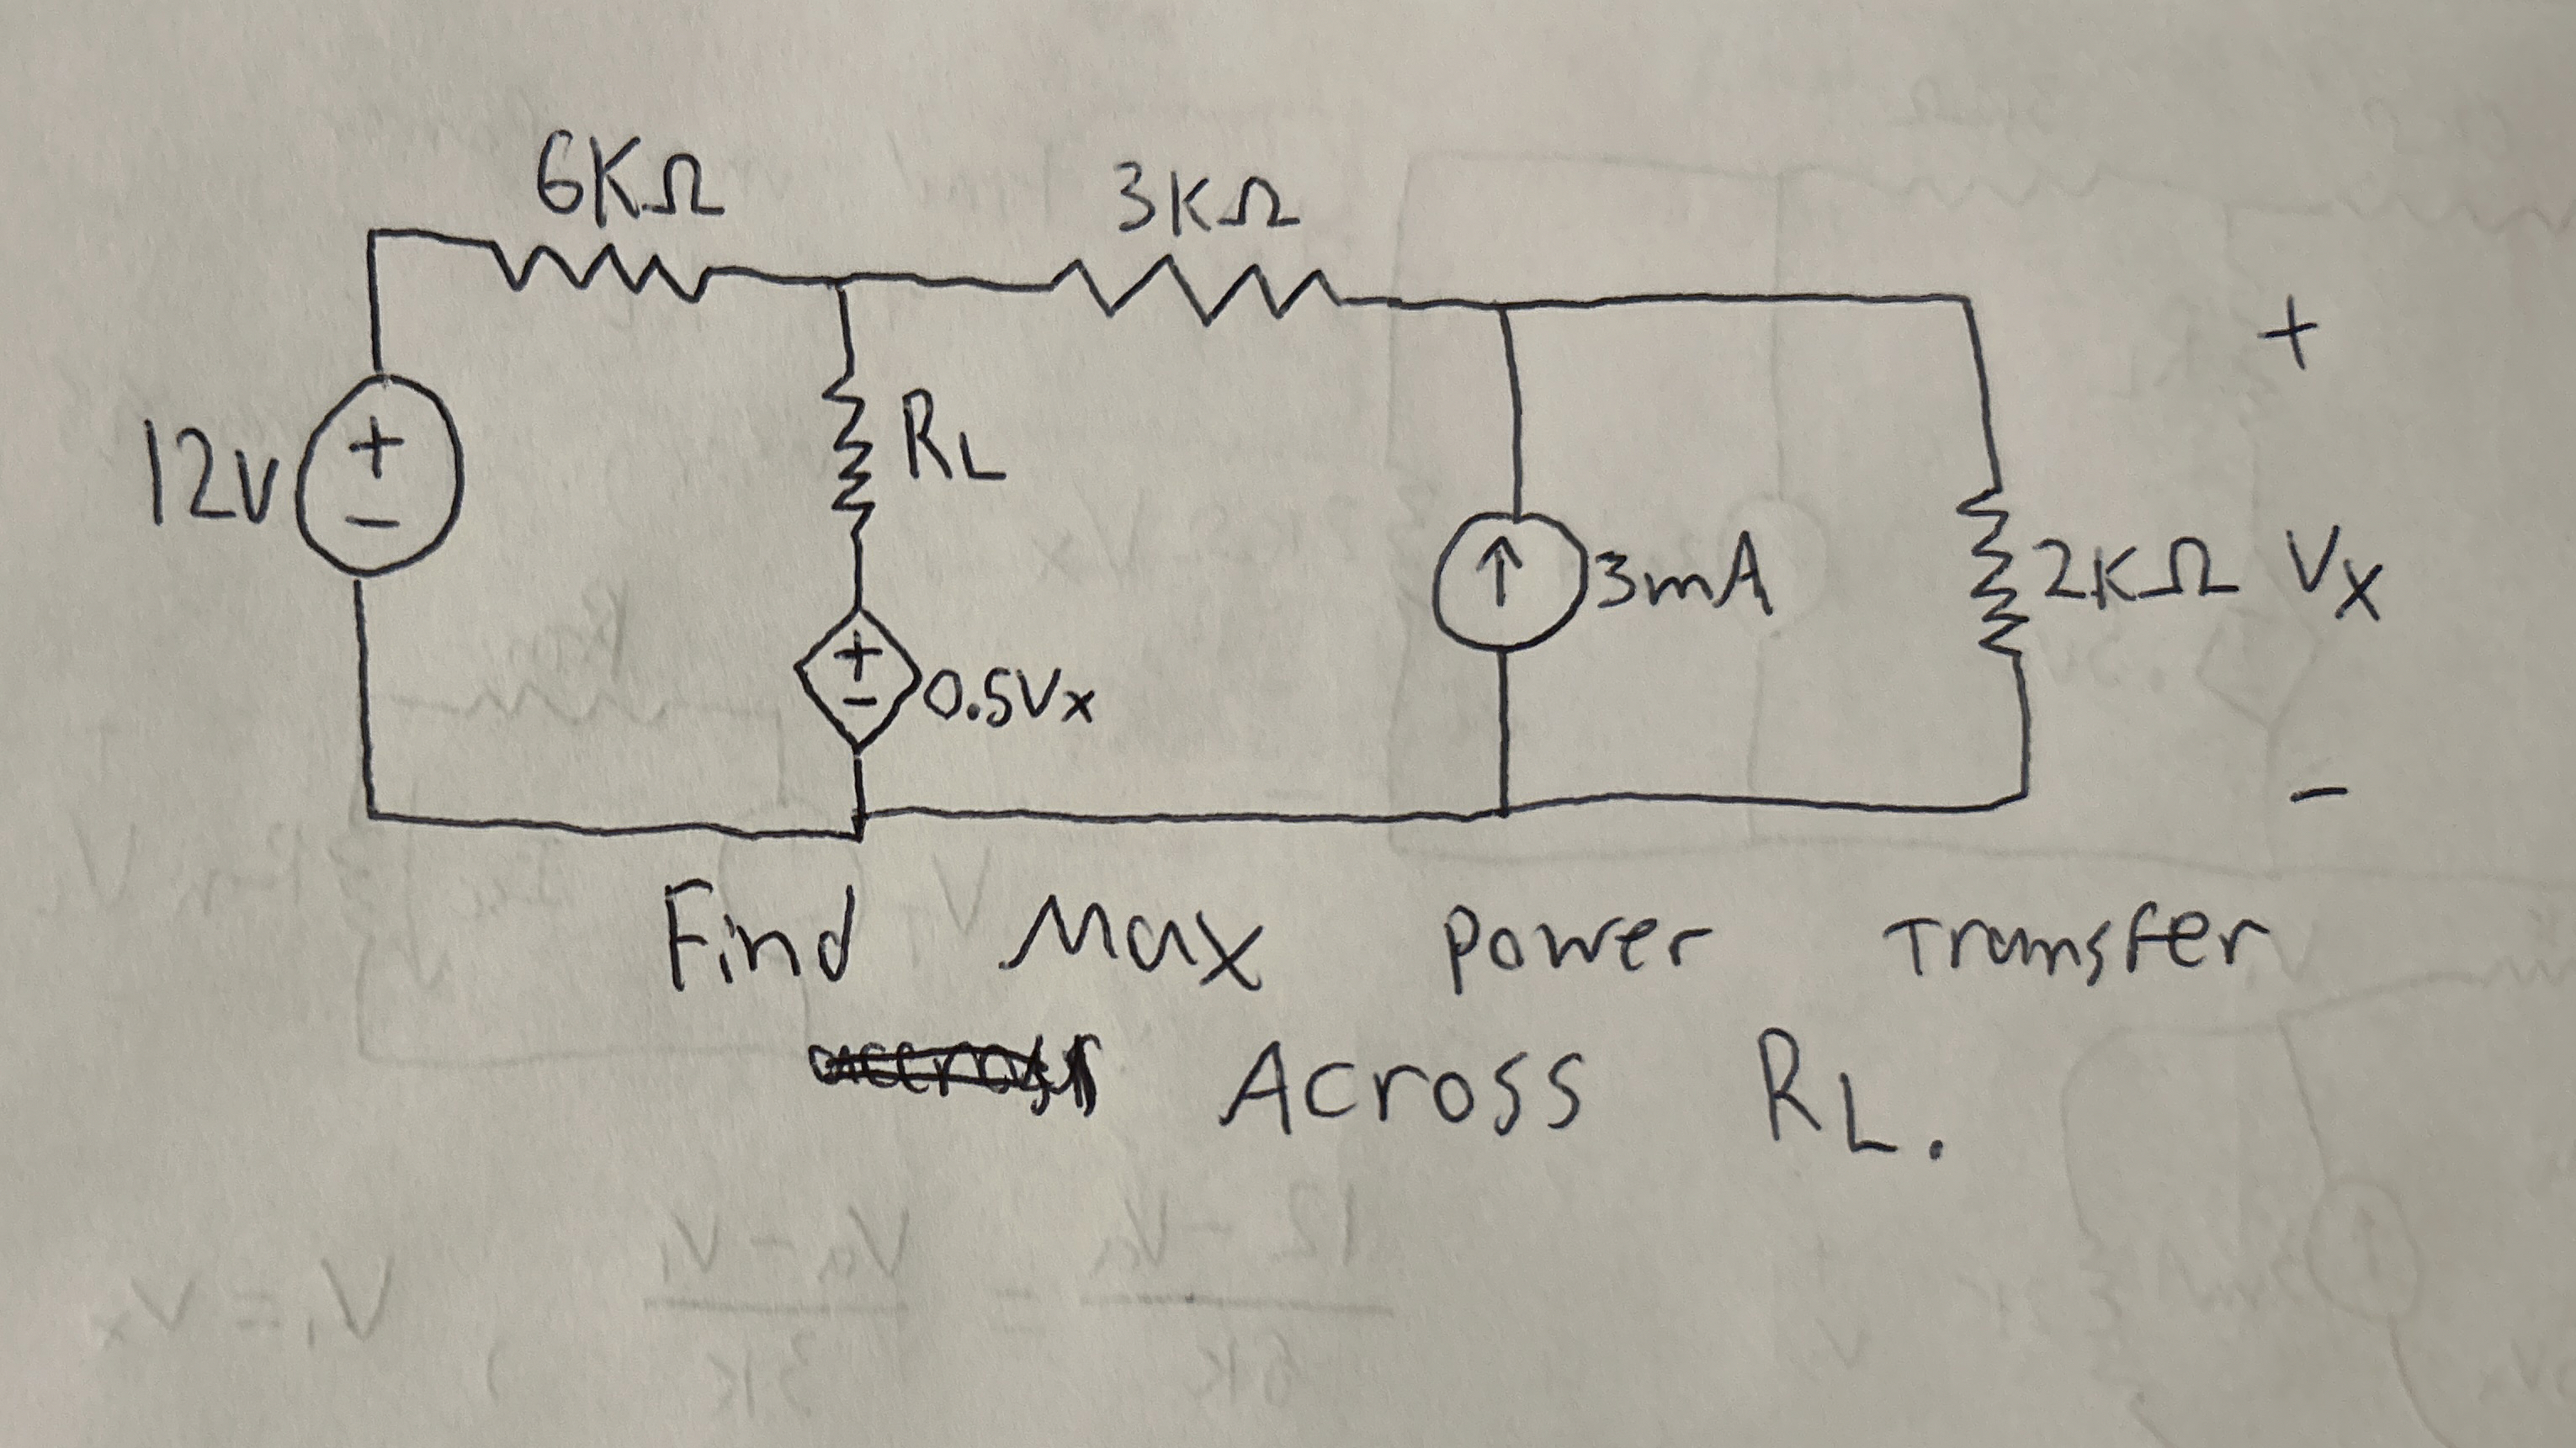 6KΩ 3KΩ
+
12V + − RL
↑ 3mA 2KΩ Vx
+ − 0.5Vx
−
Find Max Power Transfer
Across RL.